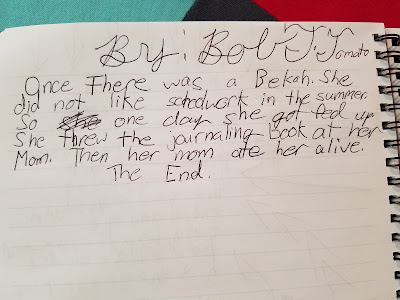 By: Bob T.Tomato
Once There was a Bekah. She
did not like schoolwork in the summer.
So one day she got fed up
She threw the journaling book at her
Mom. Then her mom ate her alive.
The End.